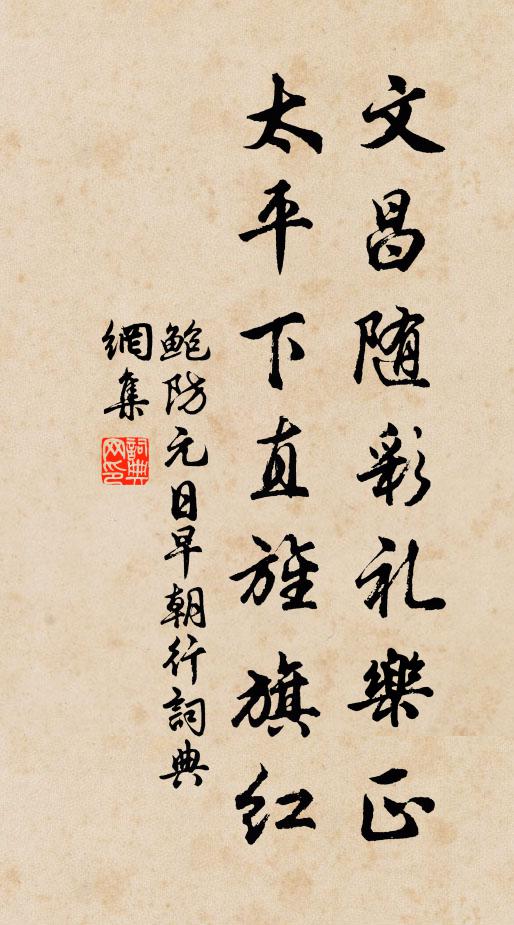 文昌随彩礼樂正
太平下直旌旗紅
鲍防元日早朝行詞典
網集
詞典
网印